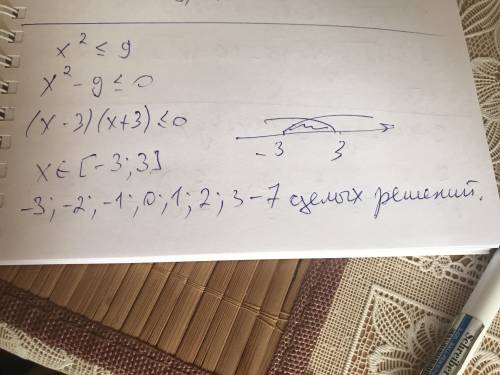 x² ≤ 9
x² - 9 ≤ 0
(x - 3)(x + 3) ≤ 0
-3 3
x ∈ [-3; 3]
-3; -2; -1; 0; 1; 2; 3 - 7 целых решений.
Schneider